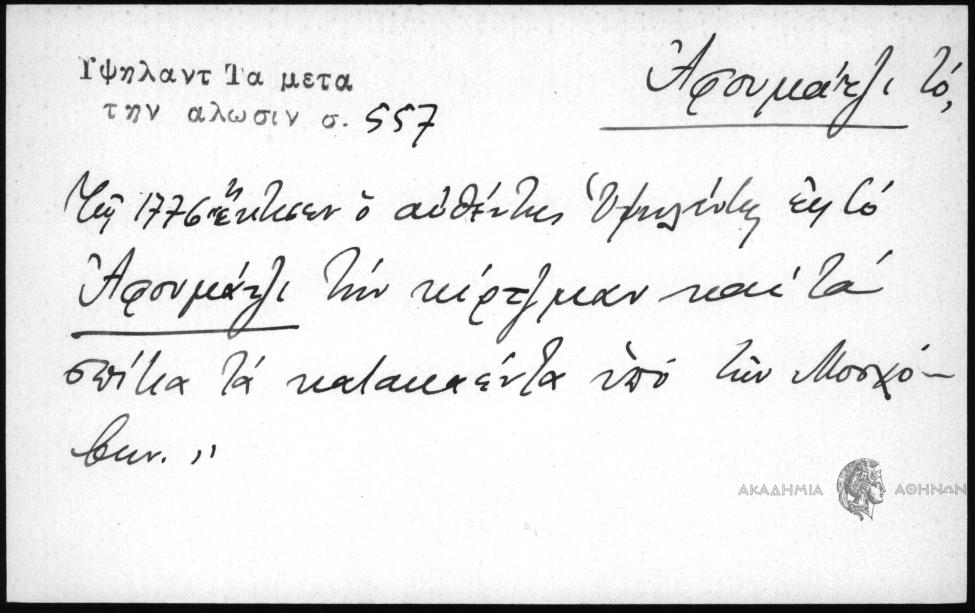 Υψηλαντ Τα μετα
την αλωσιν σ. 557
Ἀφουμάτζι τό,
Τῷ 1776 ἔκτισεν ὁ αὐθέντης Ὑψηλάντης εἰς τό
Ἀφουμάτζι τήν κέρτζμαν καί τά
σπίτια τά κατακαέντα ὑπό τῶν Μοσχό-
βων. ,,
ΑΚΑΔΗΜΙΑ ΑΘΗΝΩΝ